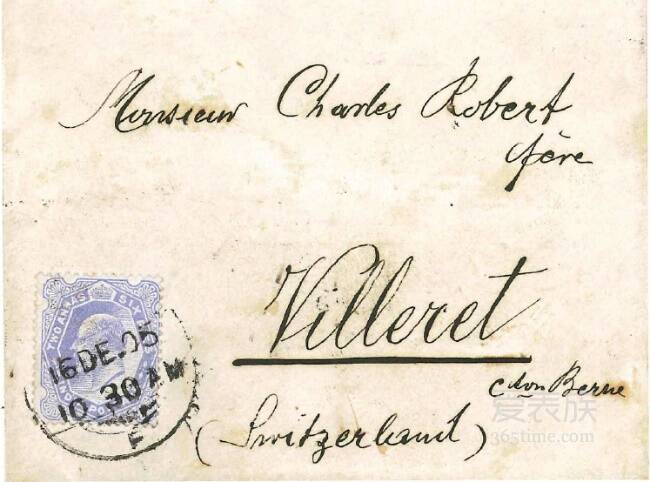 Monsieur Charles Robert
père
Villeret
cton Berne
(Switzerland)
TWO ANNAS SIX
16 DE. 05
10 30 AM
爱表族
365time.com